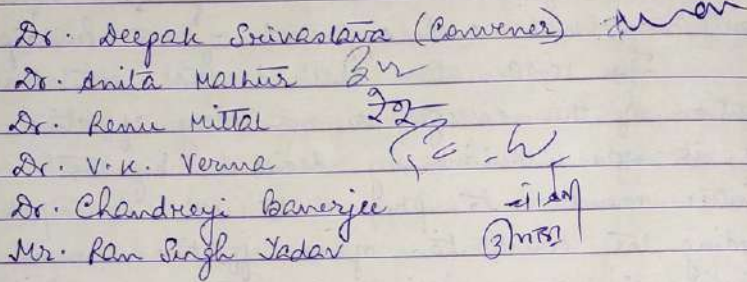 Dr. Deepak Srivastava (Convener)
Dr. Anita Mathur
Dr. Renu Mittal
Dr. V.K. Verma
Dr. Chandreyi Banerjee
Mr. Ran Singh Yadav